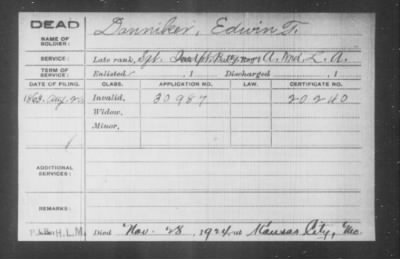 DEAD
NAME OF SOLDIER:
Danniker, Edwin T.
SERVICE:
Late rank, Sgt. Batty A, Ind. L. A.
TERM OF SERVICE:
Enlisted , 1 Discharged , 1
DATE OF FILING. CLASS. APPLICATION NO. LAW. CERTIFICATE NO.
1863. Aug. Invalid, 30987 20240
Widow,
Minor,
ADDITIONAL SERVICES:
REMARKS:
H.L.M. Died Nov. 28, 1924 at Kansas City, Mo.